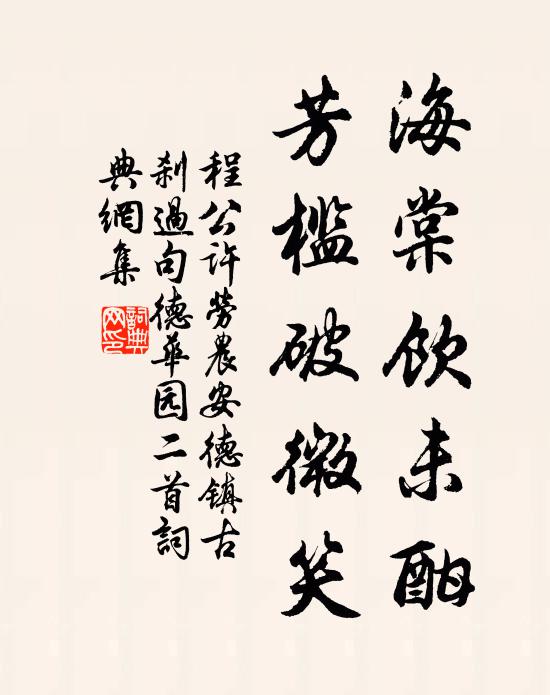 海棠飲未酣
芳檻破微笑
程公許勞農安德镇古
剎過句德華园二首詞
典網集
詞典网印